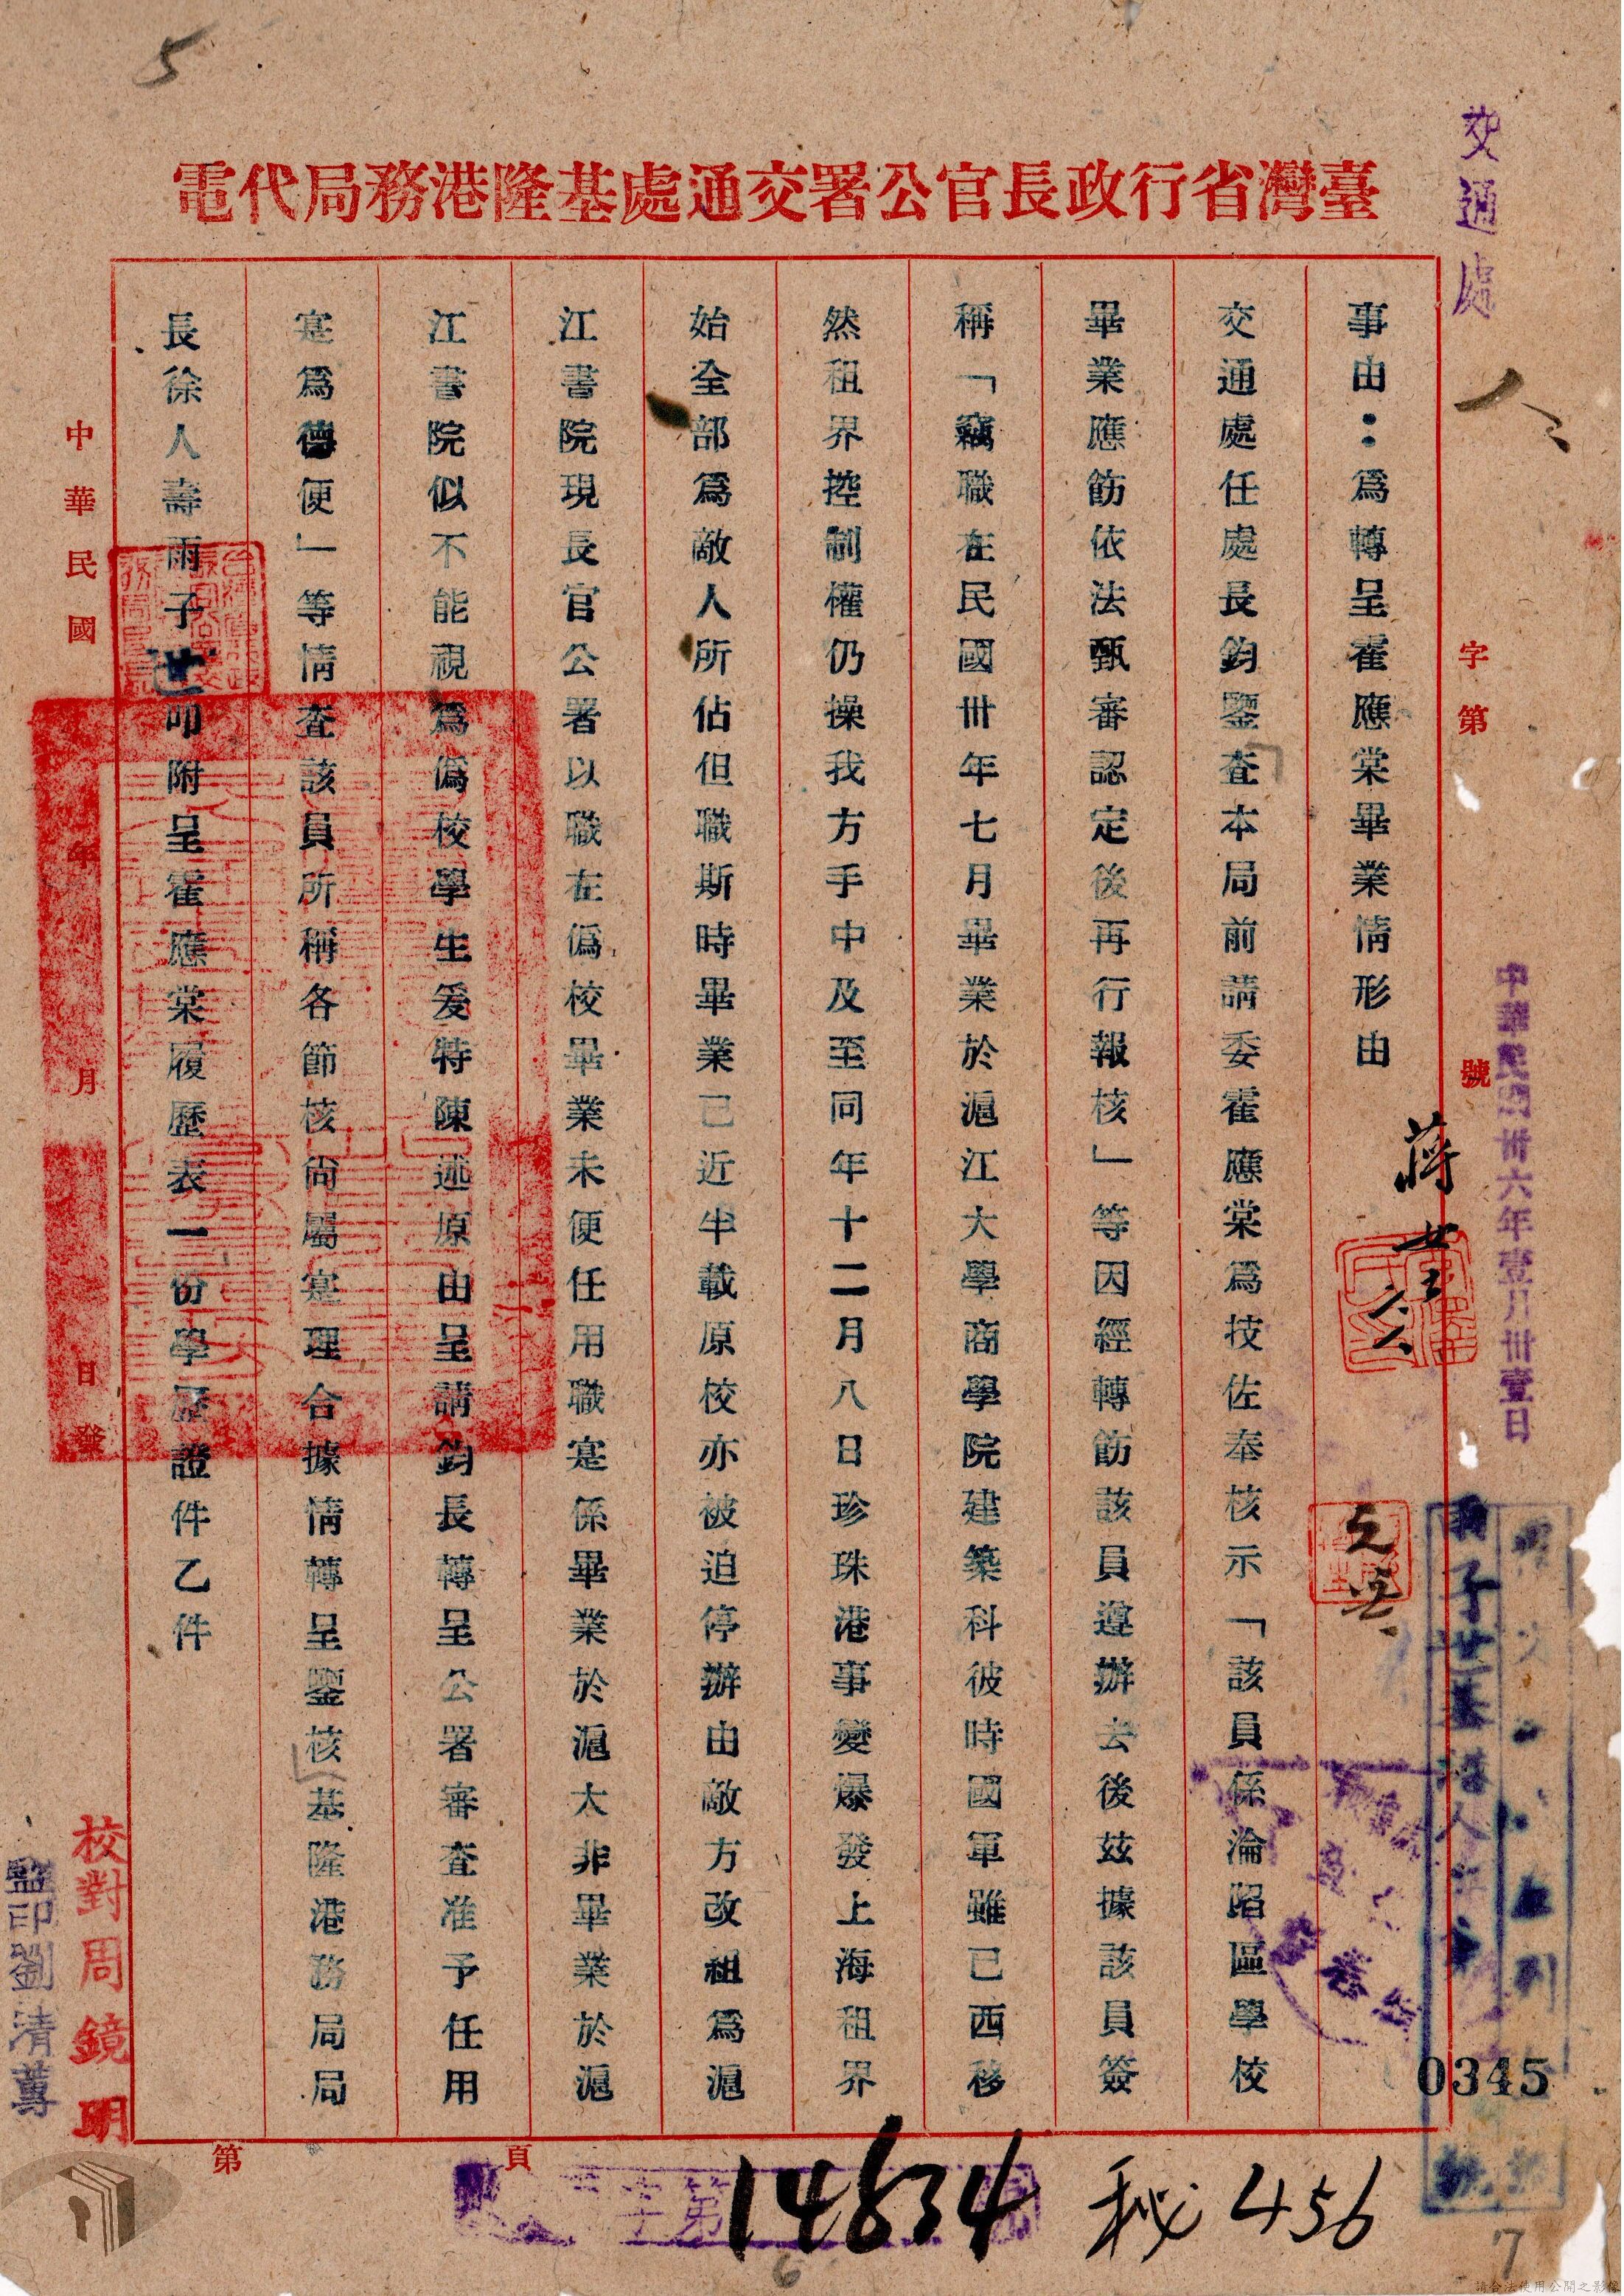 5
交通處
人
臺灣省行政長官公署交通處基隆港務局代電
字第
號
中華民國卅六年壹月卅壹日
事由：為轉呈霍應棠畢業情形由
交通處任處長鈞鑒查本局前請委霍應棠為技佐奉核示「該員係淪陷區學校
畢業應飭依法甄審認定後再行報核」等因經轉飭該員遵辦去後茲據該員簽
稱「竊職在民國卅年七月畢業於滬江大學商學院建築科彼時國軍雖已西移
然租界控制權仍操我方手中及至同年十二月八日珍珠港事變爆發上海租界
始全部為敵人所佔但職斯時畢業已近半載原校亦被迫停辦由敵方改組為滬
江書院現長官公署以職在偽校畢業未便任用職寔係畢業於滬大非畢業於滬
江書院似不能視為偽校學生爰特陳述原由呈請鈞長轉呈公署審查准予任用
寔為德便」等情查該員所稱各節核尚屬寔理合據情轉呈鑒核基隆港務局局
長徐人壽雨子世叩附呈霍應棠履歷表一份學歷證件乙件
中華民國
年
月
日
發
校對周鏡明
監印劉清蓴
雨子世基港人
0345
號
第
頁
字第
14634
秘456
6
7
請合法使用公開之影像